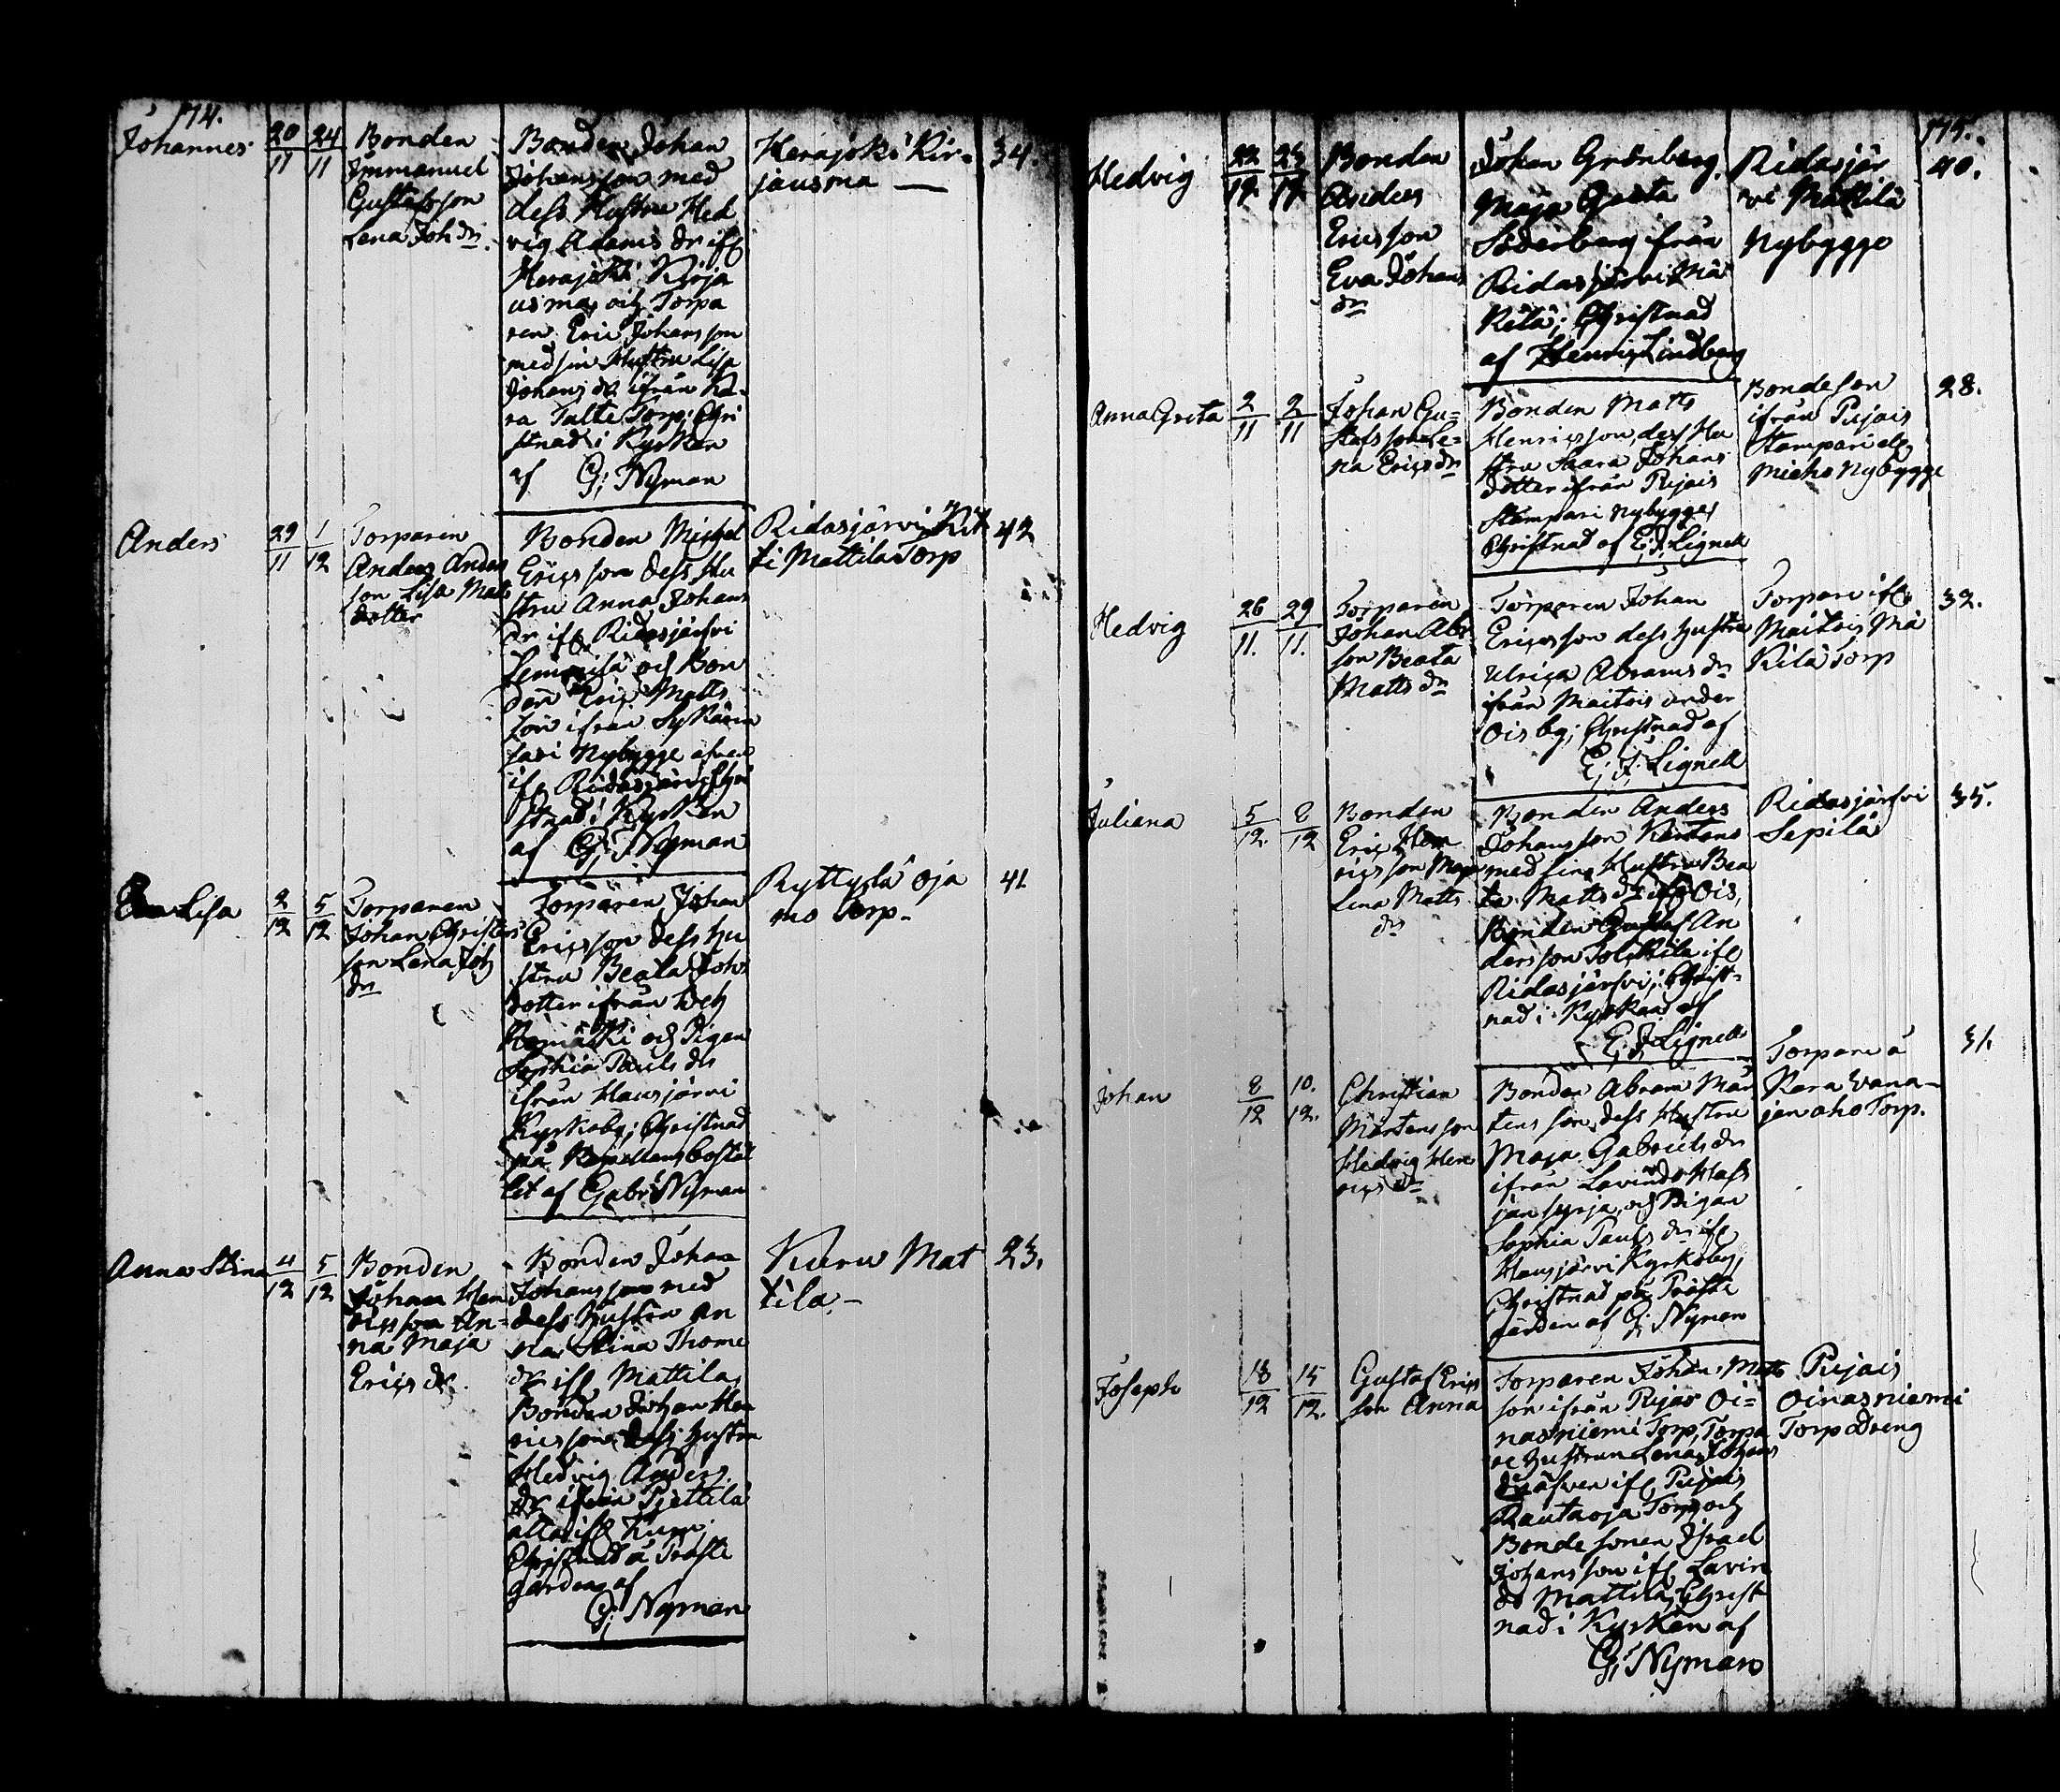 174.
Johannes
20 24
11 11
Bonden
Immanuel
Gustafsson
Lena Joh dr.
Bonden Johan
Johansson med
dess Hustru Hed
vig Adams dr ifr
Herajoki Kirja
usma, och Torpa
ren Eric Johansson
med sin Hustru Lisa
Johans dr ifrån Ka-
ra Talte Torp; Chri
stnad i Kyrkan
af G; Nyman
Herajoki Kir-
jausma —
34.
Anders
29 1
11 12
Torparen
Anders Anders
son Lisa Mats
dotter
Bonden Michel
Ericsson dess Hu
stru Anna Johans
dr ifr Ridasjärfvi
och Bon
den Eric Matts
son ifrån
sari Nybygge äfven
ifr Ridasjärvi; Chri
stnad i Kyrkan
af G; Nyman
Ridasjärvi
ti Mattila Torp
42
Lisa
2 5
12 12
Torparen
Johan Christers
son Lena Joh
dr
Torparen Johan
Ericsson dess hu
stru Beata Johs
dotter ifrån
och Pigan
Sophia Pauls dr
ifrån Hausjärvi
Kyrkoby; Christnad
på Kapellans bostäl
let af Gabr Nyman
Ryttylä Oja
mo Torp.
41
Anna Stina
4 5
12 12
Bonden
Johan Hen
ricsson An-
na Maja
Erics dr.
Bonden Johan
Johansson med
dess Hustru An
na Stina Thome
dr ifr Mattila,
Bonden Johan Hen
ricsson, dess hustru
Hedvig Anders
dr ifrån Pjettilä
alla ifr Kuru;
Christnad å Präste
gården af
G; Nyman
Kuru Mat
tila.—
23.
175.
Hedvig
22 23
12 12
Bonden
Anders
Ericsson
Eva Johans
dr
Johan Grönberg,
Maja Greta
Söderberg ifrån
Ridasjärvi Mä
kelä; Christnad
af Henric Lindberg
Ridasjär
vi Mattila
Nybygge
40.
Anna Greta
2 2
11 11
Johan Gu=
stafsson Le-
na Erics dr
Bonden Matts
Henricsson, dess Hu
stru Saara Johans
dotter ifrån Pujais
Stampari nybygge;
Christnad af E; J; Lignell
Bondeson
ifrån Pujais
Stampari
Mieho Nybygge
28.
Hedvig
26 29
11. 11.
Torparen
Johan Abr
son Beata
Matts dr
Torparen Johan
Ericsson dess hustru
Ulrica Abrams dr
ifrån Maitois under
Ois by; Christnad af
E; J; Lignell
Torpare ifr
Maitois Mä
kilä Torp
32.
Juliana
5 8
12. 12
Bonden
Eric Hen
ricsson Maja
Lena Matts
dr
Bonden Anders
Johansson
med sin Hustru Bea
ta Matts dr ifr Ois,
Bonden Gustaf An
dersson Tolkkila ifr
Ridasjärfvi; Christ-
nad i Kyrkan af
E; J; Lignell
Ridasjärfvi
Sepilä
35.
Johan
8 10.
12 12.
Christian
Mårtensson
Hedvig Hen
rics dr
Bonden Abram Mår
tensson, dess Hustru
Maja Gabriels dr
ifrån Lavindo Hafs
jan syrjä, och Pigan
Sophia Pauls dr ifr
Hausjärvi Kyrkoby;
Christnad på Präste
gården af G; Nyman
Torpare å
Kara Vana-
jan aho Torp.
31.
Joseph
13 15
12 12.
Gustaf Erics
son Anna
Torparen Johan Matts
son ifrån Pujais Oi=
nasniemi Torp, Torpa
re hustrun Lena Johans
dr äfven ifr Pujais
Rautaoja Torp och
Bonde sonen Israel
Johansson ifr Lavin
do Mattila; Christ
nad i Kyrkan af
G; Nyman
Pujais
Oinasniemi
Torp dreng